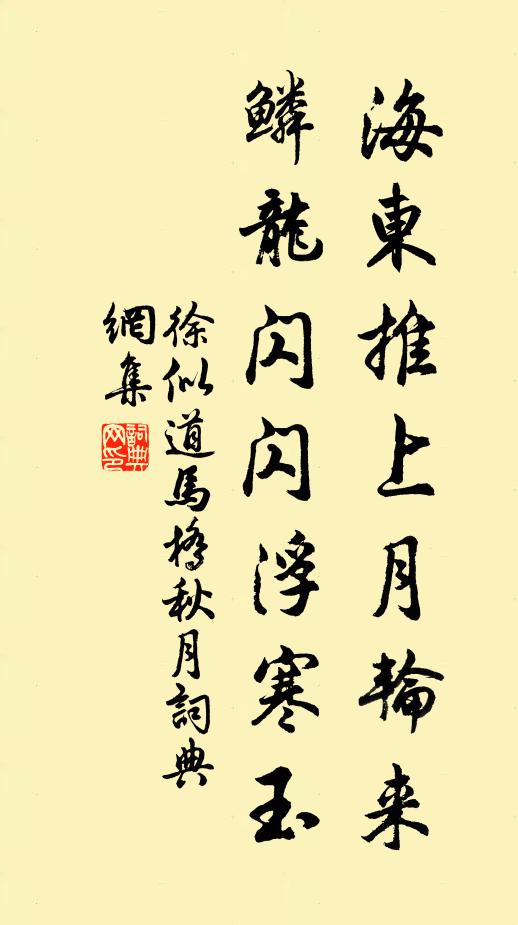 海東推上月輪来
鱗龍閃閃浮寒玉
徐似道馬橋秋月詞典
網集
詞典
网印